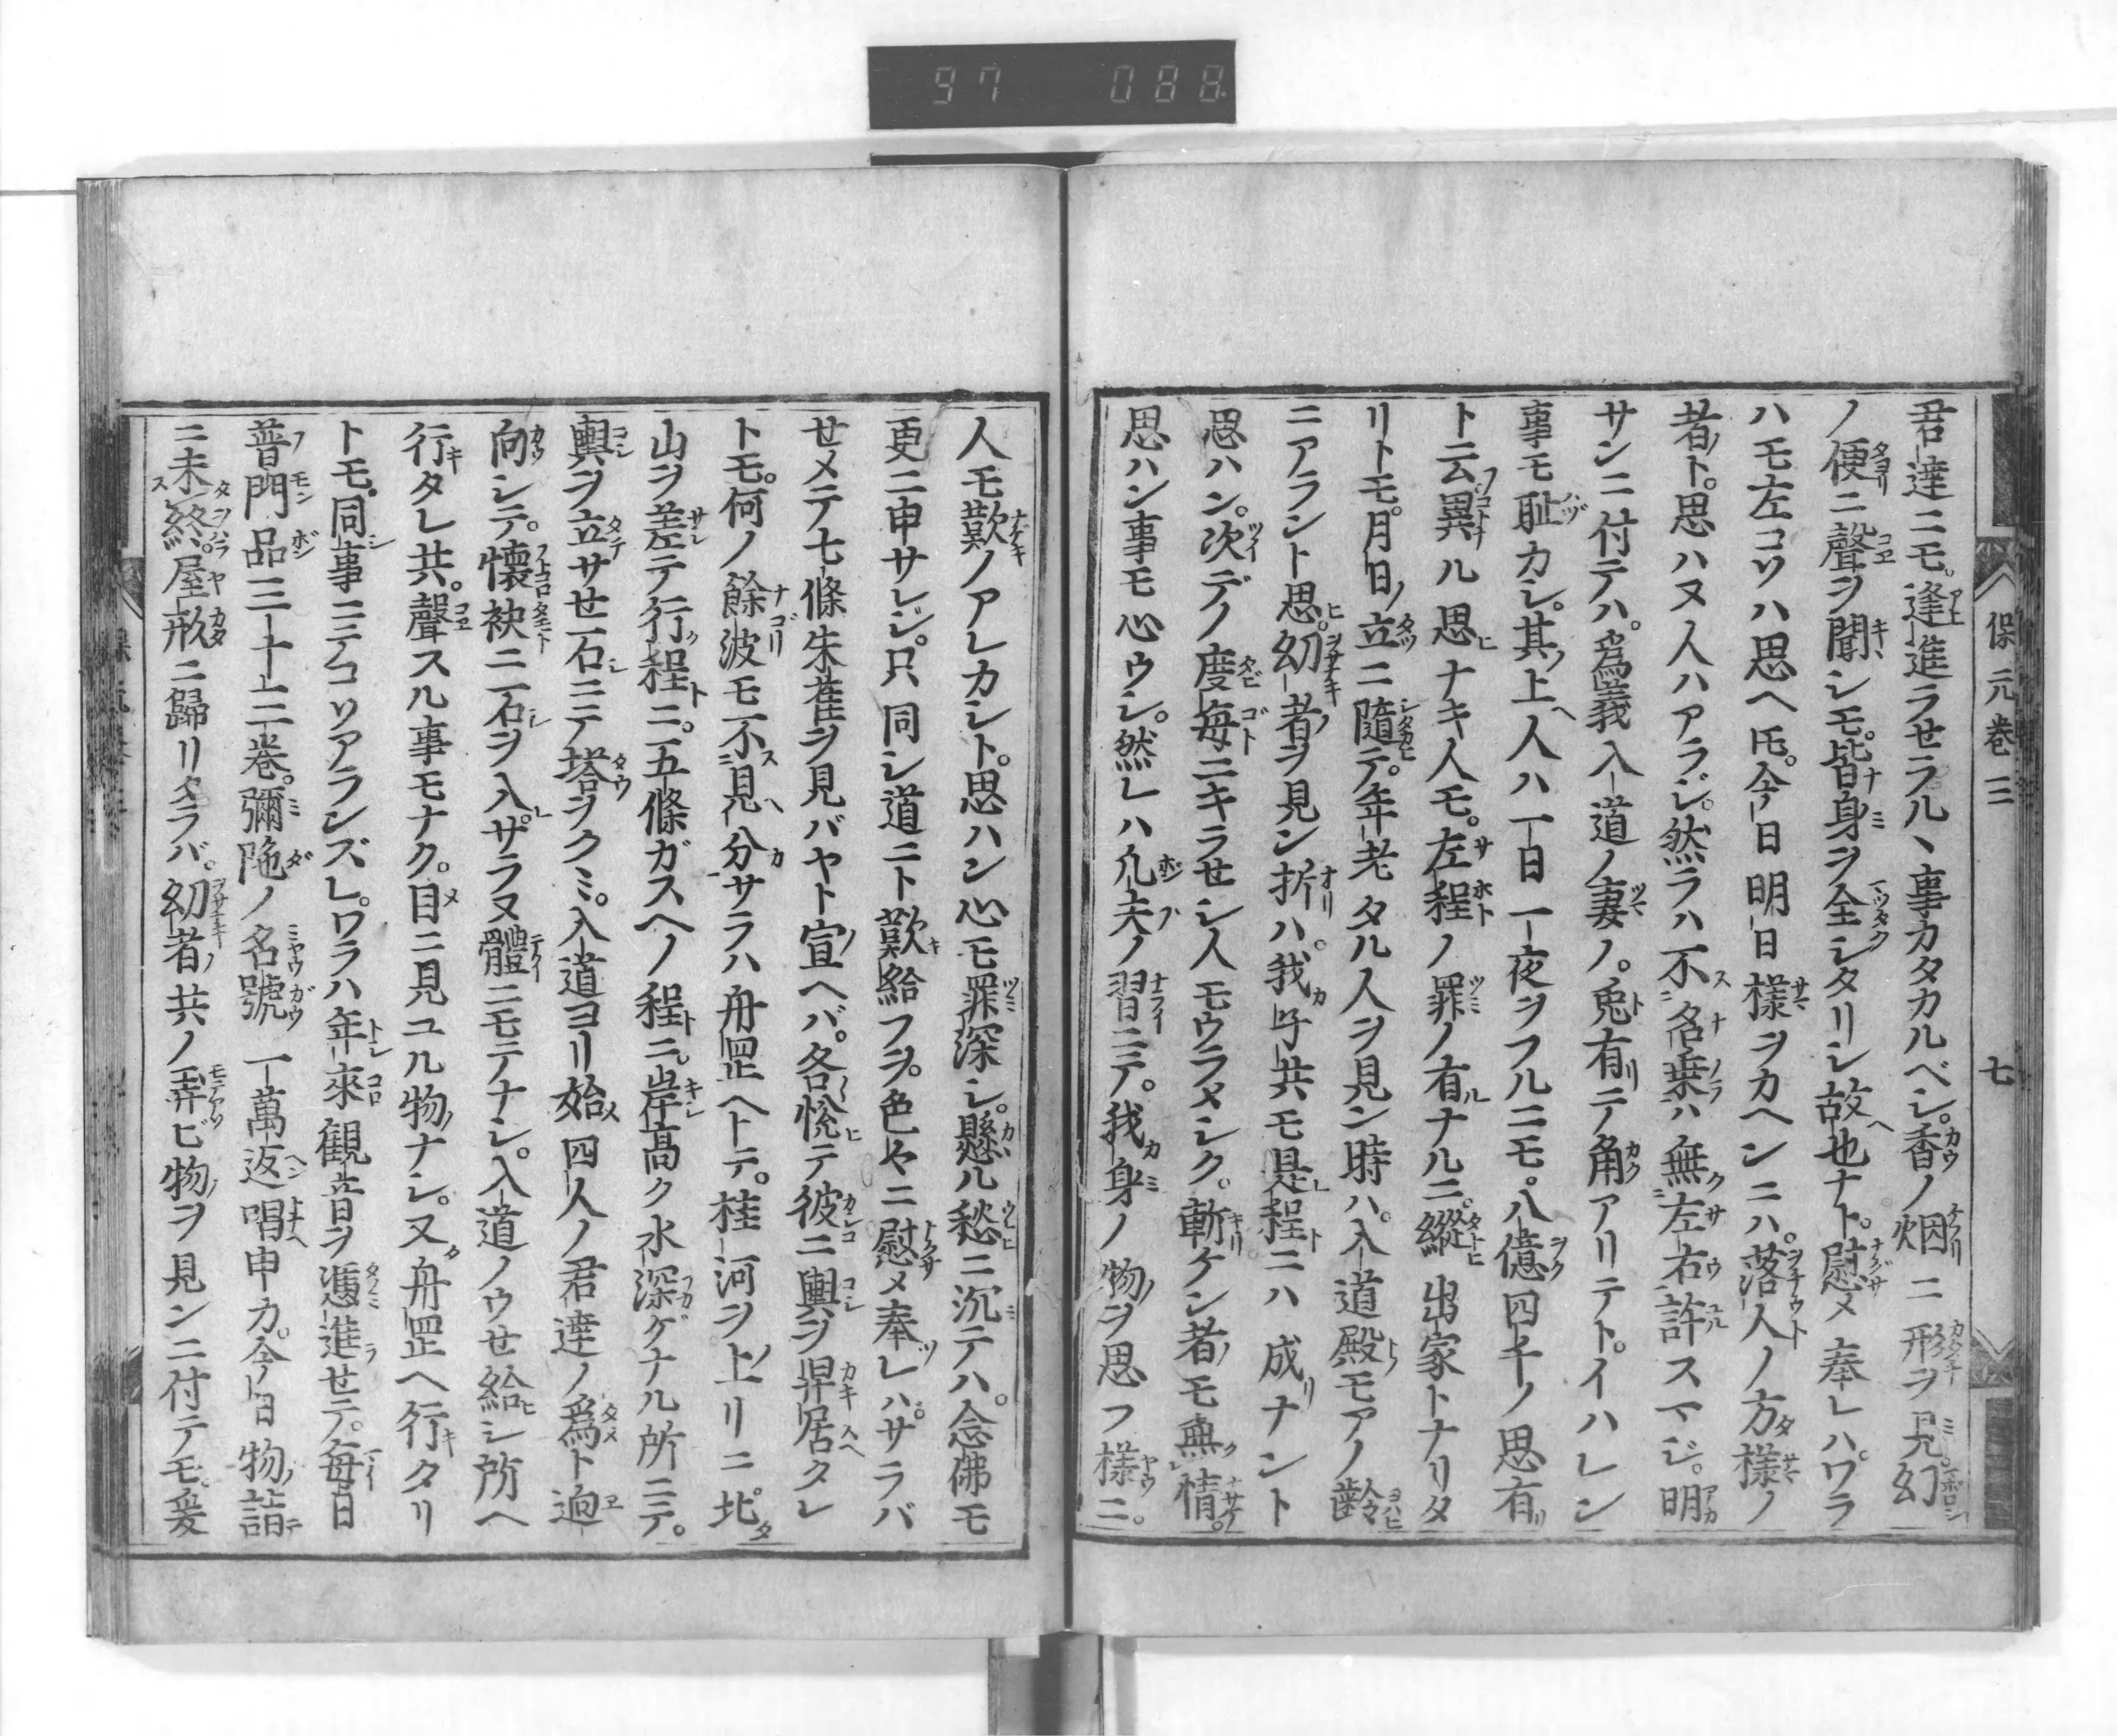 97 088
保元巻三 七
君達ニモ。逢進ラセラルヽ事カタカルベシ。香ノ烟ニ形ヲ見。幻
ノ便ニ聲ヲ聞シモ。皆身ヲ全シタリシ故也ナト。慰メ奉レハ。ワラ
ハモ左コソハ思ヘ𪜈。今日明日様ヲカヘンニハ。落人ノ方様ノ
者ト。思ハヌ人ハアラジ。然ラハ不名乗ハ無左右許スマジ。明
サンニ付テハ。爲義入道ノ妻ノ。兎有リテ角アリテト。イハレン
事モ耻カシ。其上人ハ一日一夜ヲフルニモ。八億四千ノ思有
ト云。異ナル思ナキ人モ。左程ノ罪ノ有ナルニ。縦出家トナリタ
リトモ。月日ノ立ニ隨テ。年老タル人ヲ見ン時ハ。入道殿モアノ齢
ニアラント思ヒ。幼者ヲ見ン折ハ。我子共モ是程ニハ成ナント
思ハン。次デノ度毎ニキラセシ人モウラメシク。斬ケン者モ無情。
思ハン事モ心ウシ。然レハ凡夫ノ習ニテ。我身ノ物ヲ思フ様ニ。
人モ歎ノアレカシト。思ハン心モ罪深シ。懸ル愁ニ沉テハ。念佛モ
更ニ申サレジ。只同シ道ニト歎給フヲ。色々ニ慰メ奉レハ。サラバ
せメテ七條朱雀ヲ見バヤト宣ヘバ。各悦テ彼ニ輿ヲ舁居タレ
トモ。何ノ餘波モ不見分サラハ舟罡ヘトテ。桂河ヲ上リニ。北
山ヲ差テ行程ニ。五條ガスヘノ程ニ。岸高ク水深ゲナル所ニテ。
輿ヲ立サせ石ニテ塔ヲクミ。入道ヨリ始四人ノ君達ノ爲ト廻
向シテ。懐袂ニ石ヲ入ザラヌ體ニモテナシ。入道ノウせ給シ所ヘ
行タレ共。聲スル事モナク。目ニ見ユル物ナシ。又舟罡ヘ行タリ
トモ。同事ニテコソアランズレ。ワラハ年來觀音ヲ憑進せテ。毎日
普門品三十三巻。彌陁ノ名號一萬返唱申カ。今日物詣
ニ未終。屋形ニ歸リタラバ。幼者共ノ弄ビ物ヲ見ンニ付テモ。爰